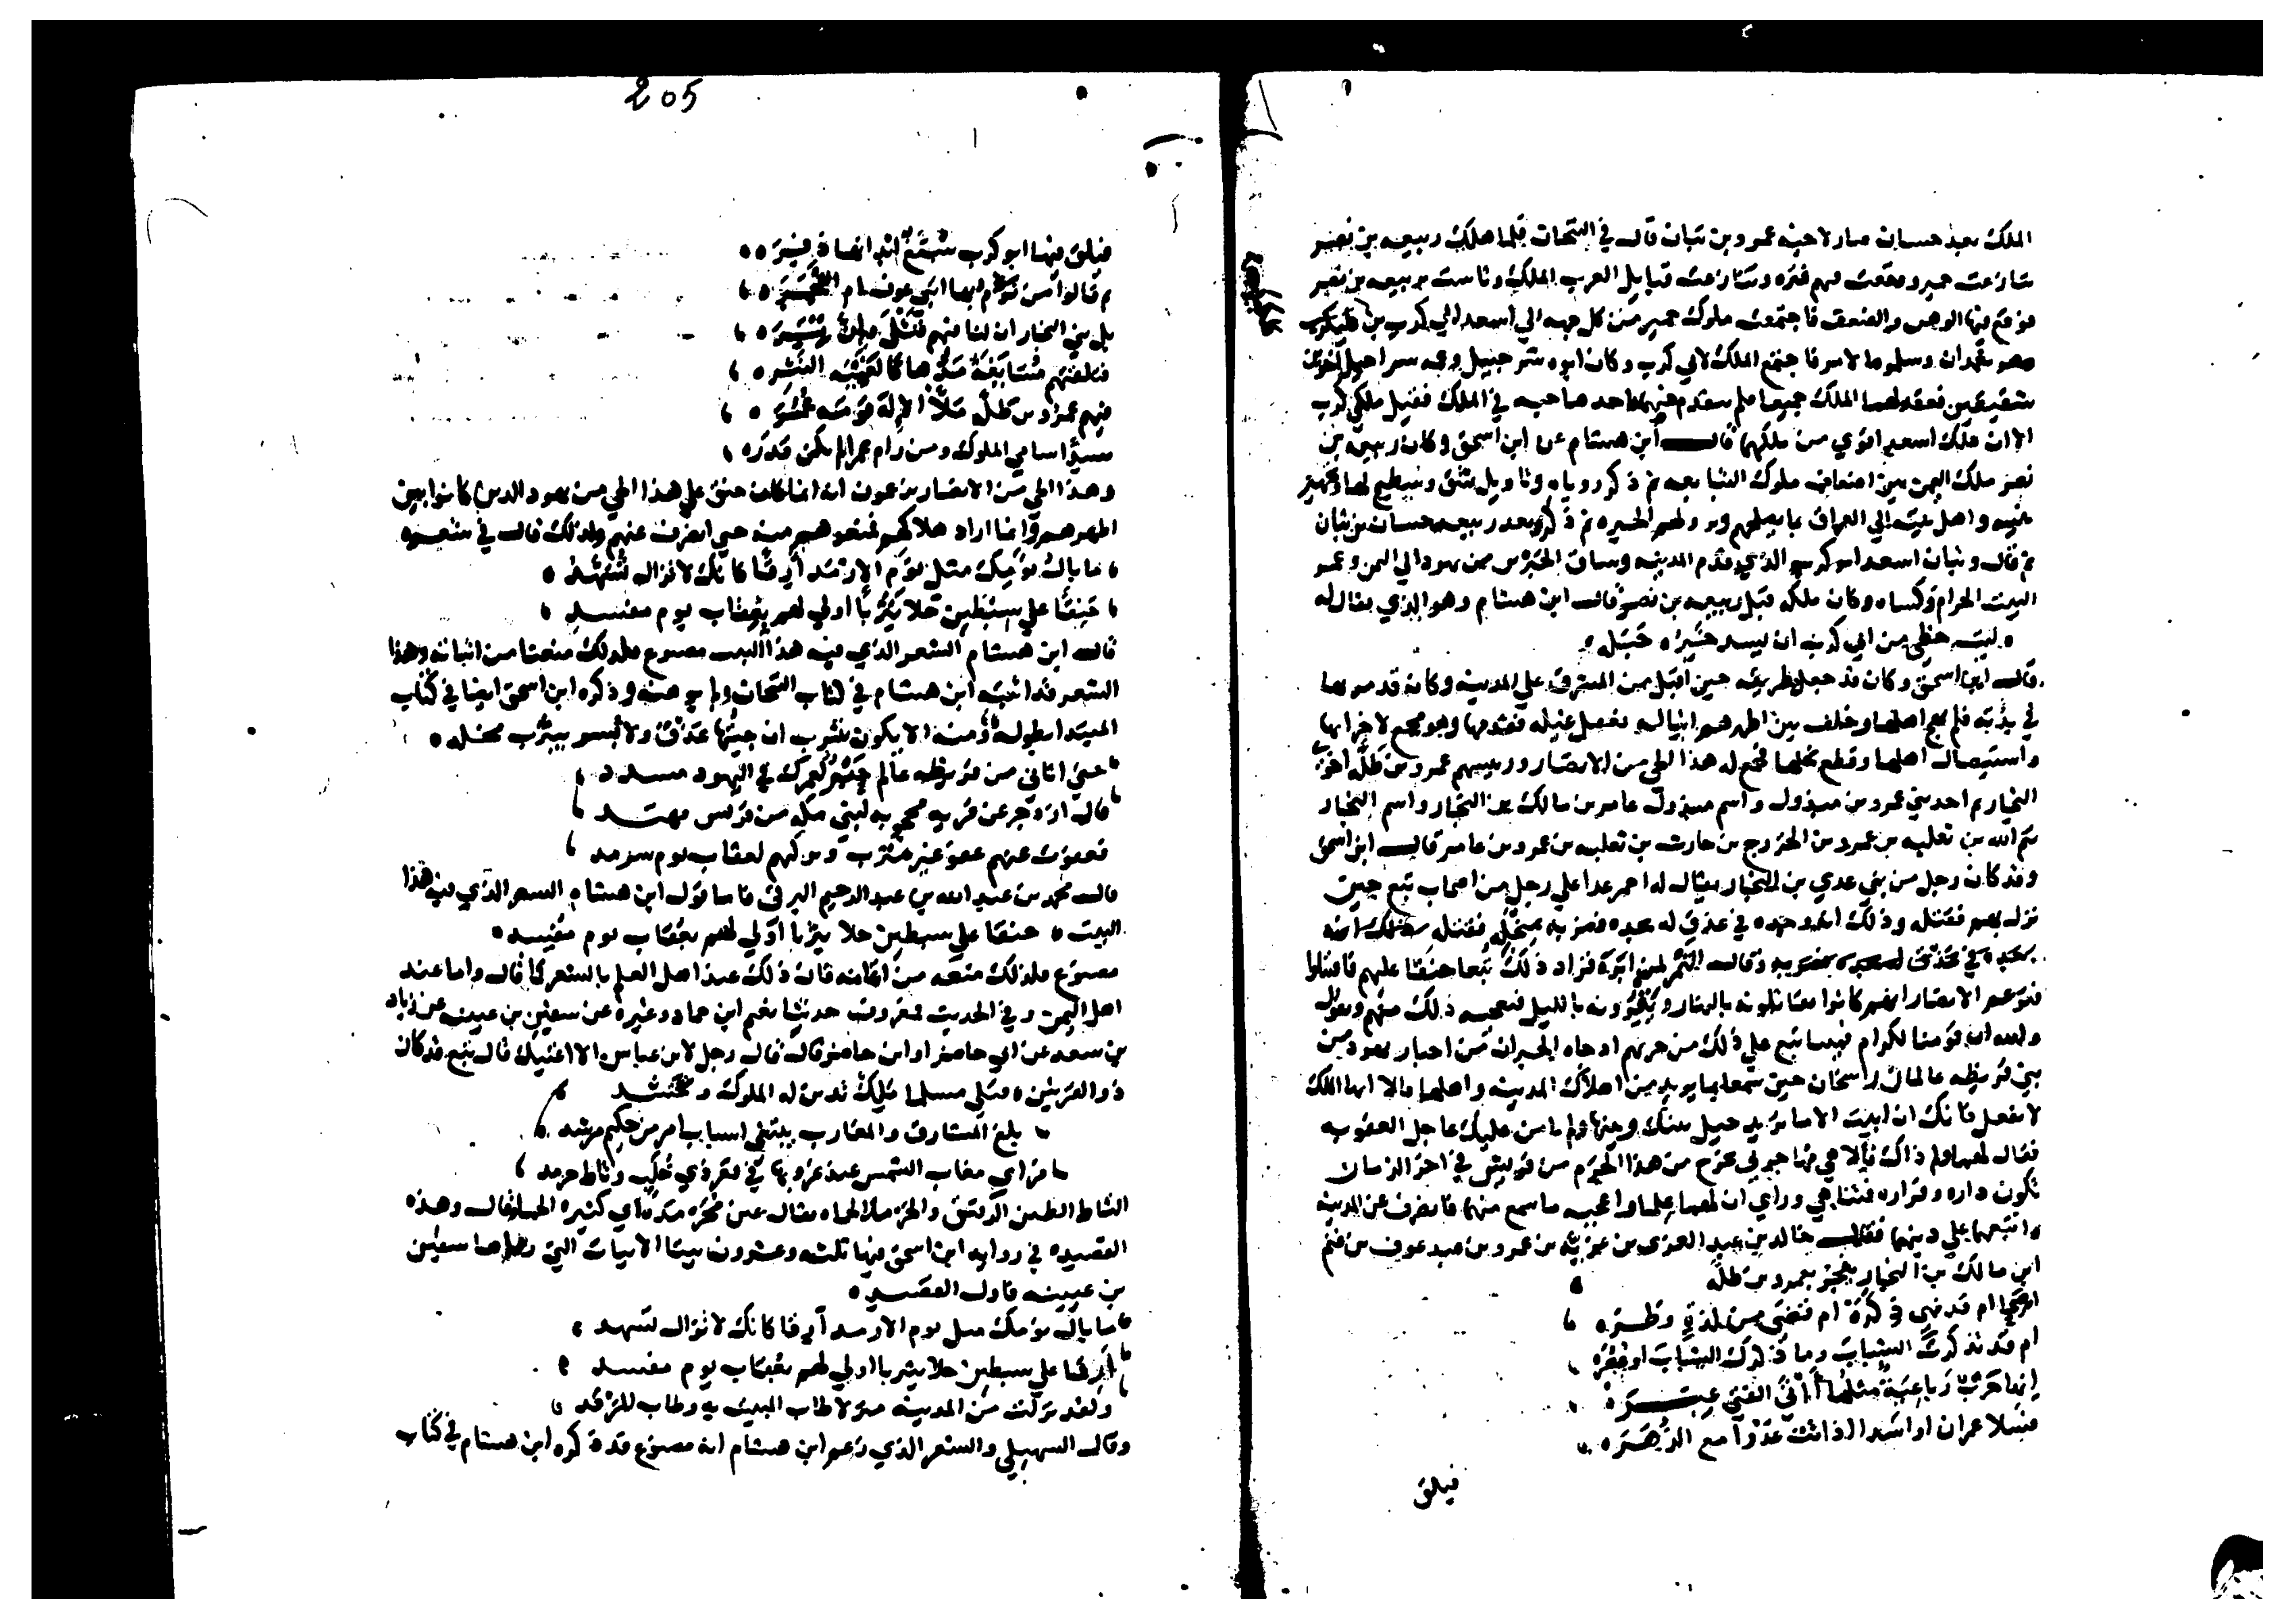 الملك بعد حسان صار لاخيه عمرو بن تبان قال في التيجان فلما هلك ربيعه بن نصر
تنازعت حمير ووقعت بهم فتره وتنازعت قبايل العرب الملك وناست ربيعه بن نصر
فوقع فيها الوهن والضعف فاجتمعت ملوك حمير من كل جهه الي اسعد ابي كرب بن ملكيكرب
وهو بغمدان وسلموا الامر فاجتمع الملك لابي كرب وكان ابوه شرحبيل وعمه سراحيل اخوين
شقيقين فعقد لهما الملك جميعا فلم يتقدم منهما احد صاحبه في الملك فقيل ملكي كرب
الا ان ملك اسعد اقوي من ملكهما قال ابن هشام عن ابن اسحق وكان ربيعه بن
نصر ملك اليمن بين اضعاف ملوك التبابعه ثم ذكر روياه وتاويل شق وسطيح لها وتجهيز
بنيه واهل بيته الي العراق بما يصلحهم ولهم الحيره ثم ذكر بعد ربيعه حسان بن تبان
ثم قال وتبان اسعد ابو كرب الذي قدم المدينه وساق الحبرين من يهود الي اليمن وعمر
البيت الحرام وكساه وكان ملكه قبل ربيعه بن نصر قال ابن هشام وهو الذي يقال له
ليت حظي من ابي كرب ان يسد خيره خبله
قال ابن اسحق وكان قد جعل طريقه حين اقبل من المشرق علي المدينه وكان قد مر بها
في بدته فلم يهج اهلها وخلف بين اظهرهم ابنا له فقتل غيله فقدمها وهو مجمع لاخرابها
واستيصال اهلها وقطع نخلها فجمع له هذا الحي من الانصار ورييسهم عمرو بن طله اخو بني
النجار ثم احد بني عمرو بن مبذول واسم مبذول عامر بن مالك بن النجار واسم النجار
تيم الله بن ثعلبه بن عمرو بن الخزرج بن حارث بن ثعلبه بن عمرو بن عامر قال ابن اسحق
وقد كان رجل من بني عدي بن النجار يقال له احمر عدا علي رجل من اصحاب تبع حين
نزل بهم فقتله وذلك انه وجده في عذق له يجده فضربه بمنجله فقتله
يجده في عذق وقال التمر لمن ابره فزاد ذلك تبعا حنقا عليهم فاقتتلوا
فتزعم الانصار انهم كانوا يقاتلونه بالنهار ويقرونه بالليل فيعجبه ذلك منهم ويقول
والله ان قومنا لكرام فبينا تبع علي ذلك من حربهم اذ جاه الحبران من احبار يهود من
بني قريظه عالمان راسخان حين سمعا بما يريد من اهلاك المدينه واهلها فقالا ايها الملك
لا تفعل فانك ان ابيت الا ما تريد حيل بينك وبينها ولم نامن عليك عاجل العقوبه
فقال لهما ولم ذاك فقالا هي مهاجر نبي يخرج من هذا الحرم من قريش في اخر الزمان
تكون داره وقراره فتناهي وراي ان لهما علما واعجبه ما سمع منهما فانصرف عن المدينه
واتبعهما علي دينهما فقال خالد بن عبد العزي بن غزيه بن عمرو بن عبد عوف بن غنم
ابن مالك بن النجار يفخر بعمرو بن طله
اصحا ام قد نهي ذكره ام قضي من لذه وطره
ام قد تذكرت الشباب وما ذكرك الشباب او عصره
انها حرب رباعيه مثلها اتي الفتي عبره
فسلا عمران او اسدا اذ اتت غدوا مع الزهره
فيلق
205
فيلق فيها ابو كرب سبغ ابدانها ذفره
ثم قالوا من نوم بها ابني عوف ام النجره
بل بني النجار ان لنا فيهم قتلي وان تره
فتلقتهم مسايفه مدها كالغبيه النثره
فيهم عمرو بن طله ملا الاله قومه عمره
سيد اسامي الملوك ومن رام عمرا لم يكن قدره
وهذا الحي من الانصار يزعمون انه انما كان حنق علي هذا الحي من يهود الذين كانوا بين
اظهرهم وانما اراد هلاكهم فمنعوهم منه حتي انصرف عنهم ولذلك قال في شعره
ما بال نومك مثل نوم الارمد ارقا كانك لا تزال تسهد
حنقا علي سبطين حلا يثربا اولي لهم بعقاب يوم مفسد
قال ابن هشام الشعر الذي فيه هذا البيت مصنوع فلذلك منعنا من اثباته وهذا
الشعر قد اثبته ابن هشام في كتاب التيجان ولم يوهنه وذكره ابن اسحق ايضا في كتاب
المبتدا بطوله ومنه الا يكون بيثرب ان جيتها عذق ولا بسر بيثرب مخله
حتي اتاني من قريظه عالم حبر لعمرك في اليهود مسدد
قال ازدجر عن قريه محجوبه لنبي مكه من قريش مهتد
فعفوت عنهم عفو غير مثرب وتركتهم لعقاب يوم سرمد
قال محمد بن عبد الله بن عبد الرحيم البرقي فاما قول ابن هشام الشعر الذي فيه هذا
البيت حنقا علي سبطين حلا يثربا اولي لهم بعقاب يوم مفسد
مصنوع فلذلك منعه من اثباته فان ذلك عند اهل العلم بالشعر كما قال واما عند
اهل اليمن وفي الحديث فمعروف حدثنا نعيم ابن حماد وغيره عن سفين بن عيينه عن زياد
بن سعد عن ابي حاضر او ابن حاضر قال قال رجل لابن عباس الا اغنيك قال تبع قد كان
ذو القرنين قبلي مسلما ملكا تدين له الملوك وتحتشد
بلغ المشارق والمغارب يبتغي اسباب امر من حكيم مرشد
فراي مغاب الشمس عند غروبها في قعر ذي خلب وثاط حرمد
الثاط الطين الرقيق والحرمد الحماه يقال عين محرمده اي كثيره الحماه قال وهذه
القصيده في روايه ابن اسحق فيها ثلثه وعشرون بيتا الابيات التي رواها سفين
بن عيينه فاول القصيده
ما بال نومك مثل نوم الارمد ارقا كانك لا تزال تسهد
ارقا علي سبطين حلا يثربا اولي لهم بعقاب يوم مفسد
ولقد نزلت من المدينه منزلا طاب المبيت به وطاب المرقد
وقال السهيلي والشعر الذي زعم ابن هشام انه مصنوع قد ذكره ابن هشام في كتاب